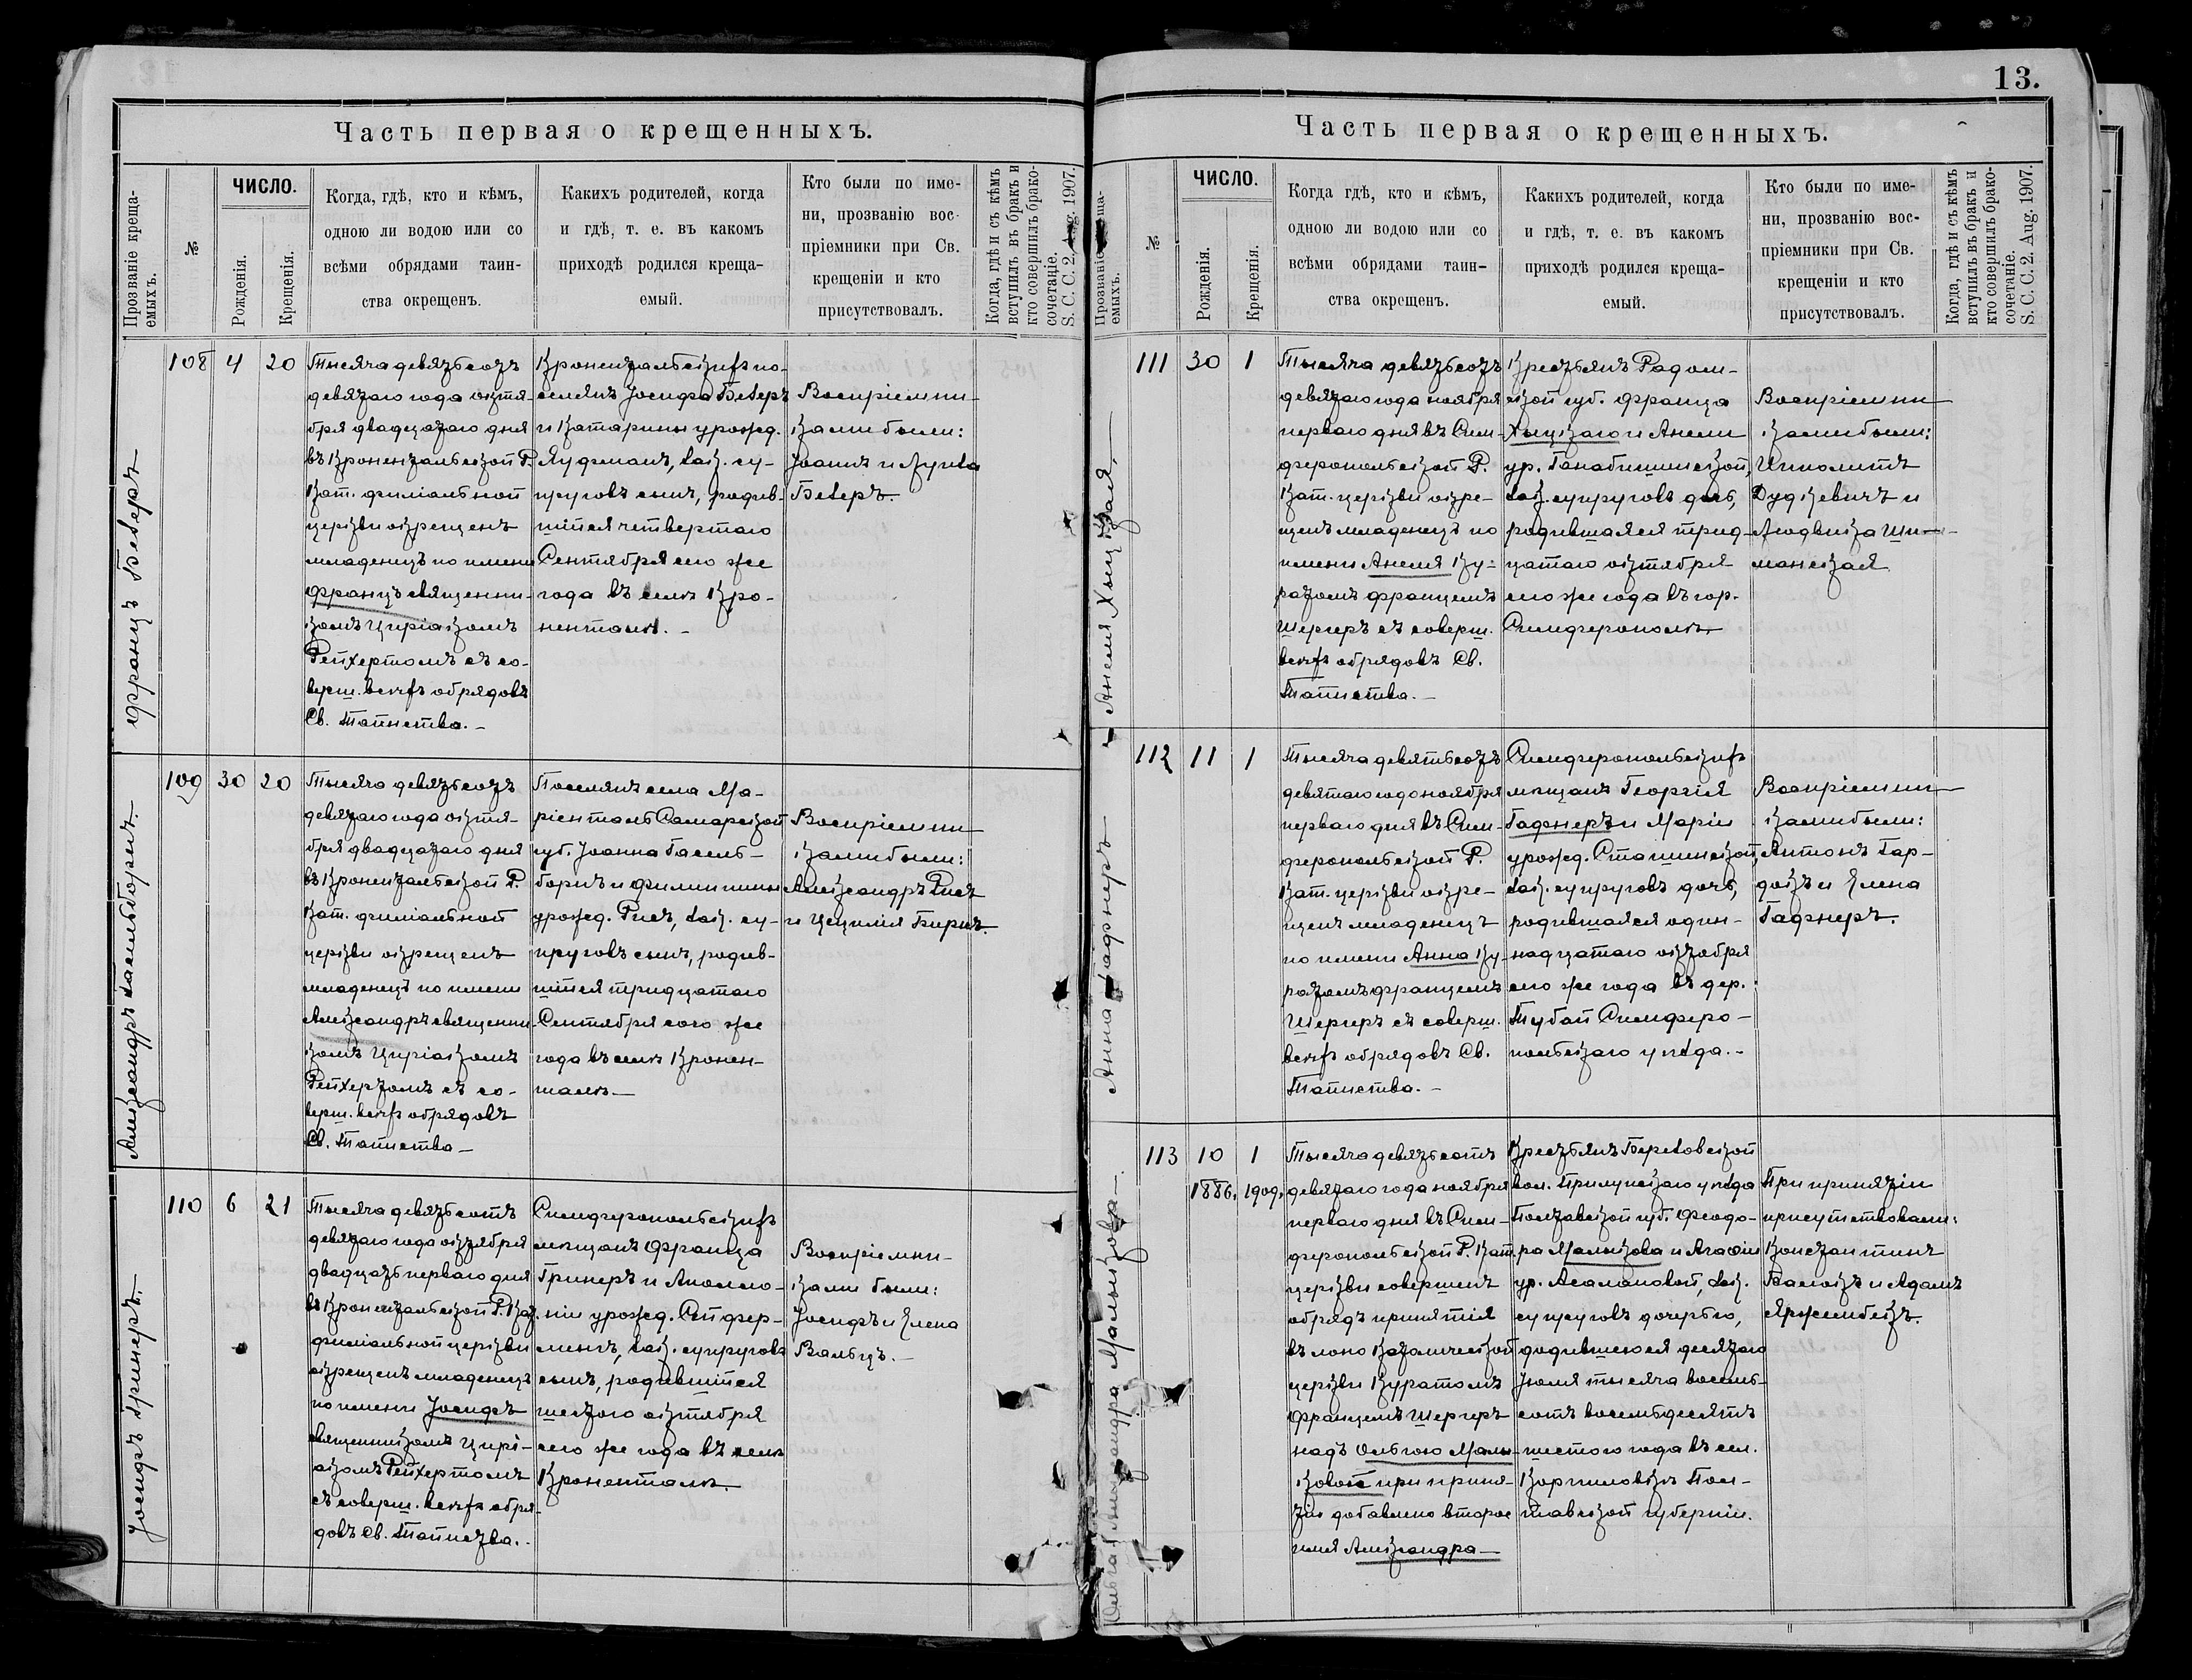 13.
Часть первая о крещенныхъ.
Прозваніе креща-
емыхъ.
№
ЧИСЛО.
Рожденія.
Крещенія.
Когда, гдѣ, кто и кѣмъ,
одною ли водою или со
всѣми обрядами таин-
ства окрещенъ.
Какихъ родителей, когда
и гдѣ, т. е. въ какомъ
приходѣ родился креща-
емый.
Кто были по име-
ни, прозванію вос-
пріемники при Св.
крещеніи и кто
присутствовалъ.
Когда, гдѣ и съ кѣмъ
вступилъ въ бракъ и
кто совершилъ брако-
сочетаніе.
S. C. C. 2. Aug. 1907.
Францъ Беверъ
108 4 20
Тысяча девятьсотъ
девятаго года октя-
бря двадцатаго дня
въ Кронентальской Р.
Кат. филіальной
церкви окрещенъ
младенецъ по имени
Францъ священни-
комъ Циріакомъ
Рейхертомъ съ со-
верш. всѣхъ обрядовъ
Св. Таинства. -
Кронентальскихъ по-
селянъ Іосифа Беверъ
и Катарины урожд.
Яуфманъ, зак. су-
пруговъ сынъ, родив-
шійся четвертаго
Сентября сего же
года въ селѣ Кро-
ненталѣ. -
Воспріемни-
ками были:
Іоаннъ и Луиза
Беверъ.
Александръ Гасельборнъ.
109 30 20
Тысяча девятьсотъ
девятаго года октя-
бря двадцатаго дня
въ Кронентальской Р.
Кат. филіальной
церкви окрещенъ
младенецъ по имени
Александръ священни-
комъ Циріакомъ
Рейхертомъ съ со-
верш. всѣхъ обрядовъ
Св. Таинства -
Поселянъ села Ма-
ріенталь Самарской
губ. Іоанна Гасель-
борнъ и Филиппины
урожд. Рисъ, зак. су-
пруговъ сынъ, родив-
шійся тридцатаго
Сентября сего же
года въ селѣ Кронен-
талѣ. -
Воспріемни-
ками были:
Александръ Рисъ
и Цецилія Бирнъ.
Іосифъ Гринеръ.
110 6 21
Тысяча девятьсотъ
девятаго года октября
двадцать перваго дня
въ Кронентальской Р. Кат.
филіальной церкви
окрещенъ младенецъ
по имени Іосифъ
священникомъ Цирі-
акомъ Рейхертомъ
съ соверш. всѣхъ обря-
довъ Св. Таинства. -
Симферопольскихъ
мѣщанъ Франца
Гринеръ и Аполло-
ніи урожд. Сейфер-
лингъ, зак. супруговъ
сынъ, родившійся
шестого октября
сего же года въ селѣ
Кроненталѣ.
Воспріемни-
ками были:
Іосифъ и Елена
Вальцъ. -
Часть первая о крещенныхъ.
Прозваніе креща-
емыхъ.
№
ЧИСЛО.
Рожденія.
Крещенія.
Когда гдѣ, кто и кѣмъ,
одною ли водою или со
всѣми обрядами таин-
ства окрещенъ.
Какихъ родителей, когда
и гдѣ, т. е. въ какомъ
приходѣ родился креща-
емый.
Кто были по име-
ни, прозванію вос-
пріемники при Св.
крещеніи и кто
присутствовалъ.
Когда, гдѣ и съ кѣмъ
вступилъ въ бракъ и
кто совершилъ брако-
сочетаніе.
S. C. C. 2. Aug. 1907.
Анеля Хыцкая, -
111 30 1
Тысяча девятьсотъ
девятаго года ноября
перваго дня въ Сим-
феропольской Р.
Кат. церкви окре-
щенъ младенецъ по
имени Анеля Ку-
ратомъ Францемъ
Шергеръ съ соверш.
всѣхъ обрядовъ Св.
Таинства. -
Крестьянъ Радом-
ской губ. Франца
Хыцкаго и Анели
ур. зак. супруговъ дочь,
родившаяся трид-
цатаго октября
сего же года въ гор.
Симферополѣ
Воспріемни-
ками были:
Ипполитъ
Дудкевичъ и
Людвика Ши-
манская
Анна Гафнеръ
112 11 1
Тысяча девятьсотъ
девятаго года ноября
перваго дня въ Сим-
феропольской Р.
Кат. церкви окре-
щенъ младенецъ
по имени Анна Ку-
ратомъ Францемъ
Шергеръ съ соверш.
всѣхъ обрядовъ Св.
Таинства. -
Симферопольскихъ
мѣщанъ Георгія
Гафнеръ и Маріи
урожд. Сташинской,
зак. супруговъ дочь,
родившаяся один-
надцатаго октября
сего же года въ дер.
Тубай Симферо-
польскаго уѣзда. -
Воспріемни-
ками были:
Антонъ Гар-
докъ и Елена
Гафнеръ.
Ольга Александра Малыкова -
113 10 1
1886, 1909,
Тысяча девятьсотъ
девятаго года ноября
перваго дня въ Сим-
феропольской Р. Кат.
церкви совершенъ
обрядъ принятія
въ лоно католической
церкви Куратомъ
Францемъ Шергеръ
надъ Ольгою Малы-
ковой при приня-
тіи добавлено второе
имя Александра -
Крестьянъ Березовской
вол. Прилукскаго уѣзда
Полтавской губ. Феодо-
ра Малыкова и Агафіи
ур. Асалановой, зак.
супруговъ дочерью,
родившеюся десятаго
Іюля тысяча восемь-
сотъ восемьдесятъ
шестого года въ сел.
Корниловкѣ Пол-
тавской губерніи.
При принятіи
присутствовали:
Константинъ
и Адамъ